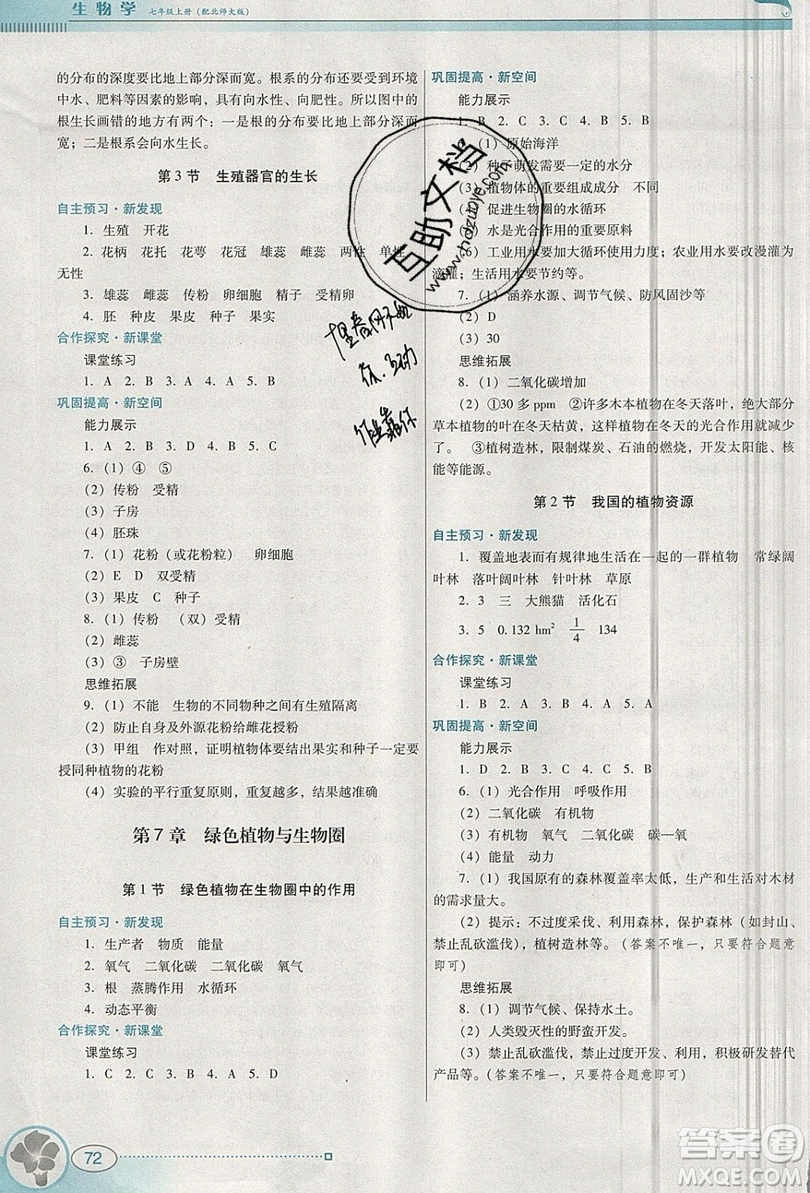 生物学 七年级上册(配北师大版)
的分布的深度要比地上部分深而宽。根系的分布还要受到环境
中水、肥料等因素的影响，具有向水性、向肥性。所以图中的
根生长画错的地方有两个：一是根的分布要比地上部分深而
宽；二是根系会向水生长。
第 3 节　生殖器官的生长
自主预习·新发现
1. 生殖　开花
2. 花柄　花托　花萼　花冠　雄蕊　雌蕊　两性　单性
无性
3. 雄蕊　雌蕊　传粉　卵细胞　精子　受精卵
4. 胚　种皮　果皮　种子　果实
合作探究·新课堂
课堂练习
1. A　2. B　3. A　4. A　5. B
巩固提高·新空间
能力展示
1. A　2. B　3. D　4. B　5. C
6. （1）④　⑤
（2）传粉　受精
（3）子房
（4）胚珠
7. （1）花粉（或花粉粒）　卵细胞
（2）E　D　双受精
（3）果皮　C　种子
8. （1）传粉　（双）受精
（2）雌蕊
（3）③　子房壁
思维拓展
9. （1）不能　生物的不同物种之间有生殖隔离
（2）防止自身及外源花粉给雌花授粉
（3）甲组　作对照，证明植物体要结出果实和种子一定要
授同种植物的花粉
（4）实验的平行重复原则，重复越多，结果越准确
第 7 章　绿色植物与生物圈
第 1 节　绿色植物在生物圈中的作用
自主预习·新发现
1. 生产者　物质　能量
2. 氧气　二氧化碳　二氧化碳　氧气
3. 根　蒸腾作用　水循环
4. 动态平衡
合作探究·新课堂
课堂练习
1. C　2. C　3. B　4. A　5. D
72
巩固提高·新空间
能力展示
1. B　2. C　3. C　4. B　5. A
6. （1）原始海洋
（2）种子萌发需要的水分
（3）植物体的重要组成成分　不同
（4）促进生物圈的水循环
（5）水是光合作用的重要原料
（6）工业用水要加大循环使用力度；农业用水要改漫灌为
滴灌；生活用水要节约等。
7. （1）涵养水源、调节气候、防风固沙等
（2）D
（3）30
思维拓展
8. （1）二氧化碳增加
（2）①30 多 ppm　②许多木本植物在冬天落叶，绝大部分
草本植物的叶在冬天枯黄，这样植物在冬天的光合作用就减少
了。　③植树造林，限制煤炭、石油的燃烧，开发太阳能、核
能等能源。
第 2 节　我国的植物资源
自主预习·新发现
1. 覆盖地表而有规律地生活在一起的一群植物　常绿阔
叶林　落叶阔叶林　针叶林　草原
2. 3　三　大熊猫　活化石
3. 5　0.132 hm²　1/4　134
合作探究·新课堂
课堂练习
1. B　2. A　3. A　4. A　5. A
巩固提高·新空间
能力展示
1. D　2. B　3. B　4. C　5. B
6. （1）光合作用　呼吸作用
（2）二氧化碳　有机物
（3）有机物　氧气　二氧化碳　碳—氧
（4）能量　动力
7. （1）我国原有的森林覆盖率太低，生产和生活对木材
的需求量大。
（2）提示：不过度采伐、利用森林，保护森林（如封山、
禁止乱砍滥伐），植树造林等。（答案不唯一，只要符合题意
即可）
思维拓展
8. （1）调节气候、保持水土。
（2）人类毁灭性的野蛮开发。
（3）禁止乱砍滥伐，禁止过度开发、利用，积极研发替代
产品等。（答案不唯一，只要符合题意即可）
互助文档
答案圈
MXQE.COM